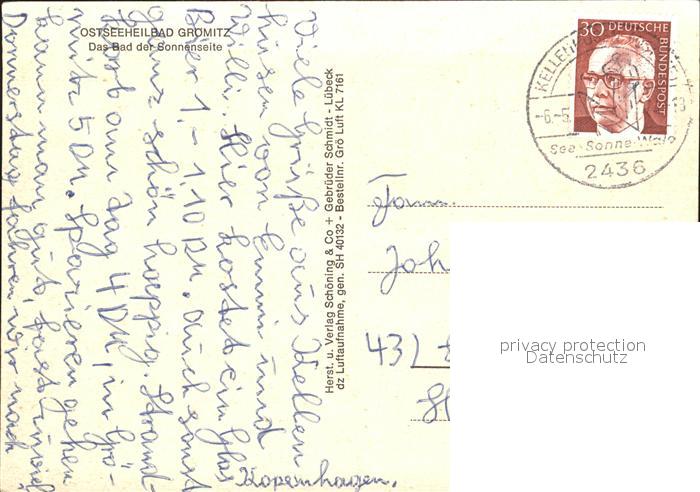 OSTSEEHEILBAD GRÖMITZ
Das Bad der Sonnenseite
Viele Grüße aus Kellen
husen von Emmi und
Willi. Hier kostet ein Glas
Bier 1,- 1.10 DM. Auch sonst
ganz schön happig. Strand-
korb am Tag 4 DM, in Grö-
mitz 5 DM. Spazieren gehen
kann man gut, fast zuviel
Donnerstag fahren wir nach
Kopenhagen.
Herst. u. Verlag Schöning & Co + Gebrüder Schmidt - Lübeck
dz Luftaufnahme, gen. SH 40132 - Bestellnr. Grö Luft KL 7161
30 DEUTSCHE
BUNDESPOST
KELLEN
-6.-5.
See-Sonne-Wald
2436
Fam.
Joh
432
privacy protection
Datenschutz